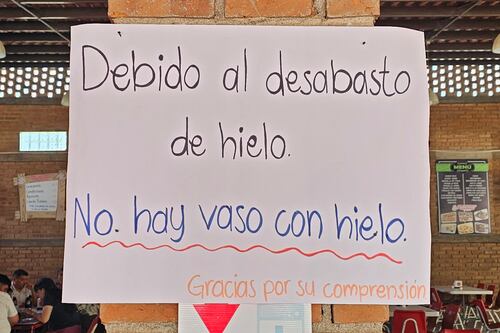 Debido al desabasto
de hielo.
No. hay vaso con hielo.
Gracias por su comprensión
MENÚ